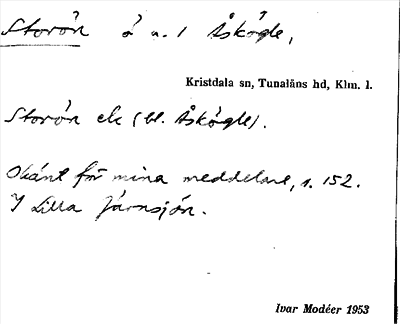 Storön ö n. 1 Åskögle,
Kristdala sn, Tunaläns hd, Klm. l.
Storön ek (bl. Åskögle).
Okänt för mina meddelare, s. 152.
I Lilla Järnsjön.
Ivar Modéer 1953